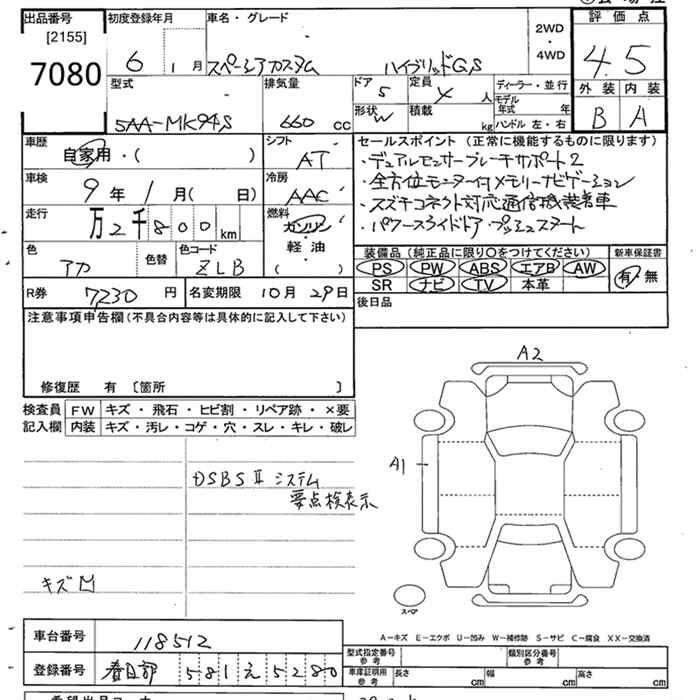 出品番号
[2155]
7080
初度登録年月
6 1月
車名・グレード
スペーシアカスタム ハイブリッドGS
2WD
4WD
評価点
4.5
外装 内装
B A
型式
5AA-MK94S
排気量
660 cc
ドア
5
定員
4 人
形状
W
積載
kg
ディーラー・並行
モデル年式 年
ハンドル 左・右
車歴
自家用・( )
シフト
AT
車検
9年 1月( 日)
冷房
AAC
走行
万2千800km
燃料
ガソリン
軽油
( )
色
アカ
色替
色コード
ZLB
セールスポイント (正常に機能するものに限ります)
・デュアルセンサーブレーキサポート2
・全方位モニター付メモリーナビゲーション
・スズキコネクト対応通信機装着車
・パワースライドドア プッシュスタート
装備品 (純正品に限り○をつけてください)
PS PW ABS エアB AW
SR ナビ TV 本革
新車保証書
有・無
R券 7230 円
名変期限 10月 29日
後日品
注意事項申告欄 (不具合内容等は具体的に記入して下さい)
修復歴 有 〔箇所 〕
検査員記入欄
FW キズ・飛石・ヒビ割・リペア跡・×要
内装 キズ・汚レ・コゲ・穴・スレ・キレ・破レ
A2
A1
DSBSⅡシステム
要点検表示
キズ凹
スペア
A-キズ E-エクボ U-凹み W-補修跡 S-サビ C-腐食 XX-交換済
車台番号 118512
登録番号 春日部 581 え 5280
型式指定番号 参考
類別区分番号 参考
車庫証明用 参考
長さ cm
幅 cm
高さ cm